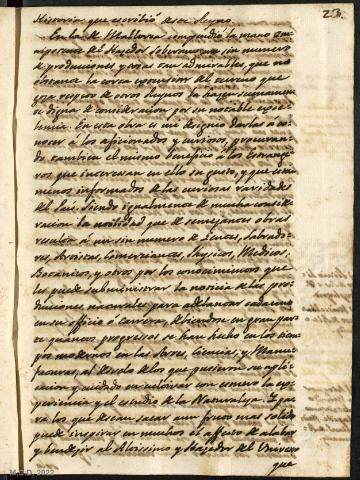 253.
Historia que escribió de ese Reyno.
En la de Mallorca comprendió la mano om-
nipotente del Hacedor soberano un sin numero
de producciones y cosas tan admirables, que no
obstante la corta extension del terreno que
goza respecto de otros Reynos la hacen sumamen-
te digna de consideracion por su notable exce-
lencia. En esta obra es mi designio darlas á co-
nocer á los aficionados y curiosos, procuran-
do tambien el mismo beneficio á los estrange-
ros que interesan en ello su gusto, y que estan
menos informados de las curiosas raridades
del Pais. Siendo igualmente de mucha conside-
racion la utilidad que de semejantes obras
resulta á un sin numero de Gentes, Labrado-
res, Artistas, Comerciantes, Physicos, Medicos,
Botanicos, y otros por los conocimientos que
les puede subministrar la noticia de las pro-
ducciones naturales para adelantar cada uno
en su officio ó carrera, debiendose en gran par-
te quantos progressos se han hecho en los tiem-
pos modernos en las Artes, Ciencias, y Manu-
facturas, al desvelo de los que pusieron su apli-
cacion y cuidado en cultivar con esmero la ex-
periencia y el estudio de la Naturaleza. Y para
los que desean sacar aun fruto mas solido
puede inspirar en muchos el afecto de alabar
y bendecir al Altissimo y Hacedor del Universo
que
M.C.D. 2022